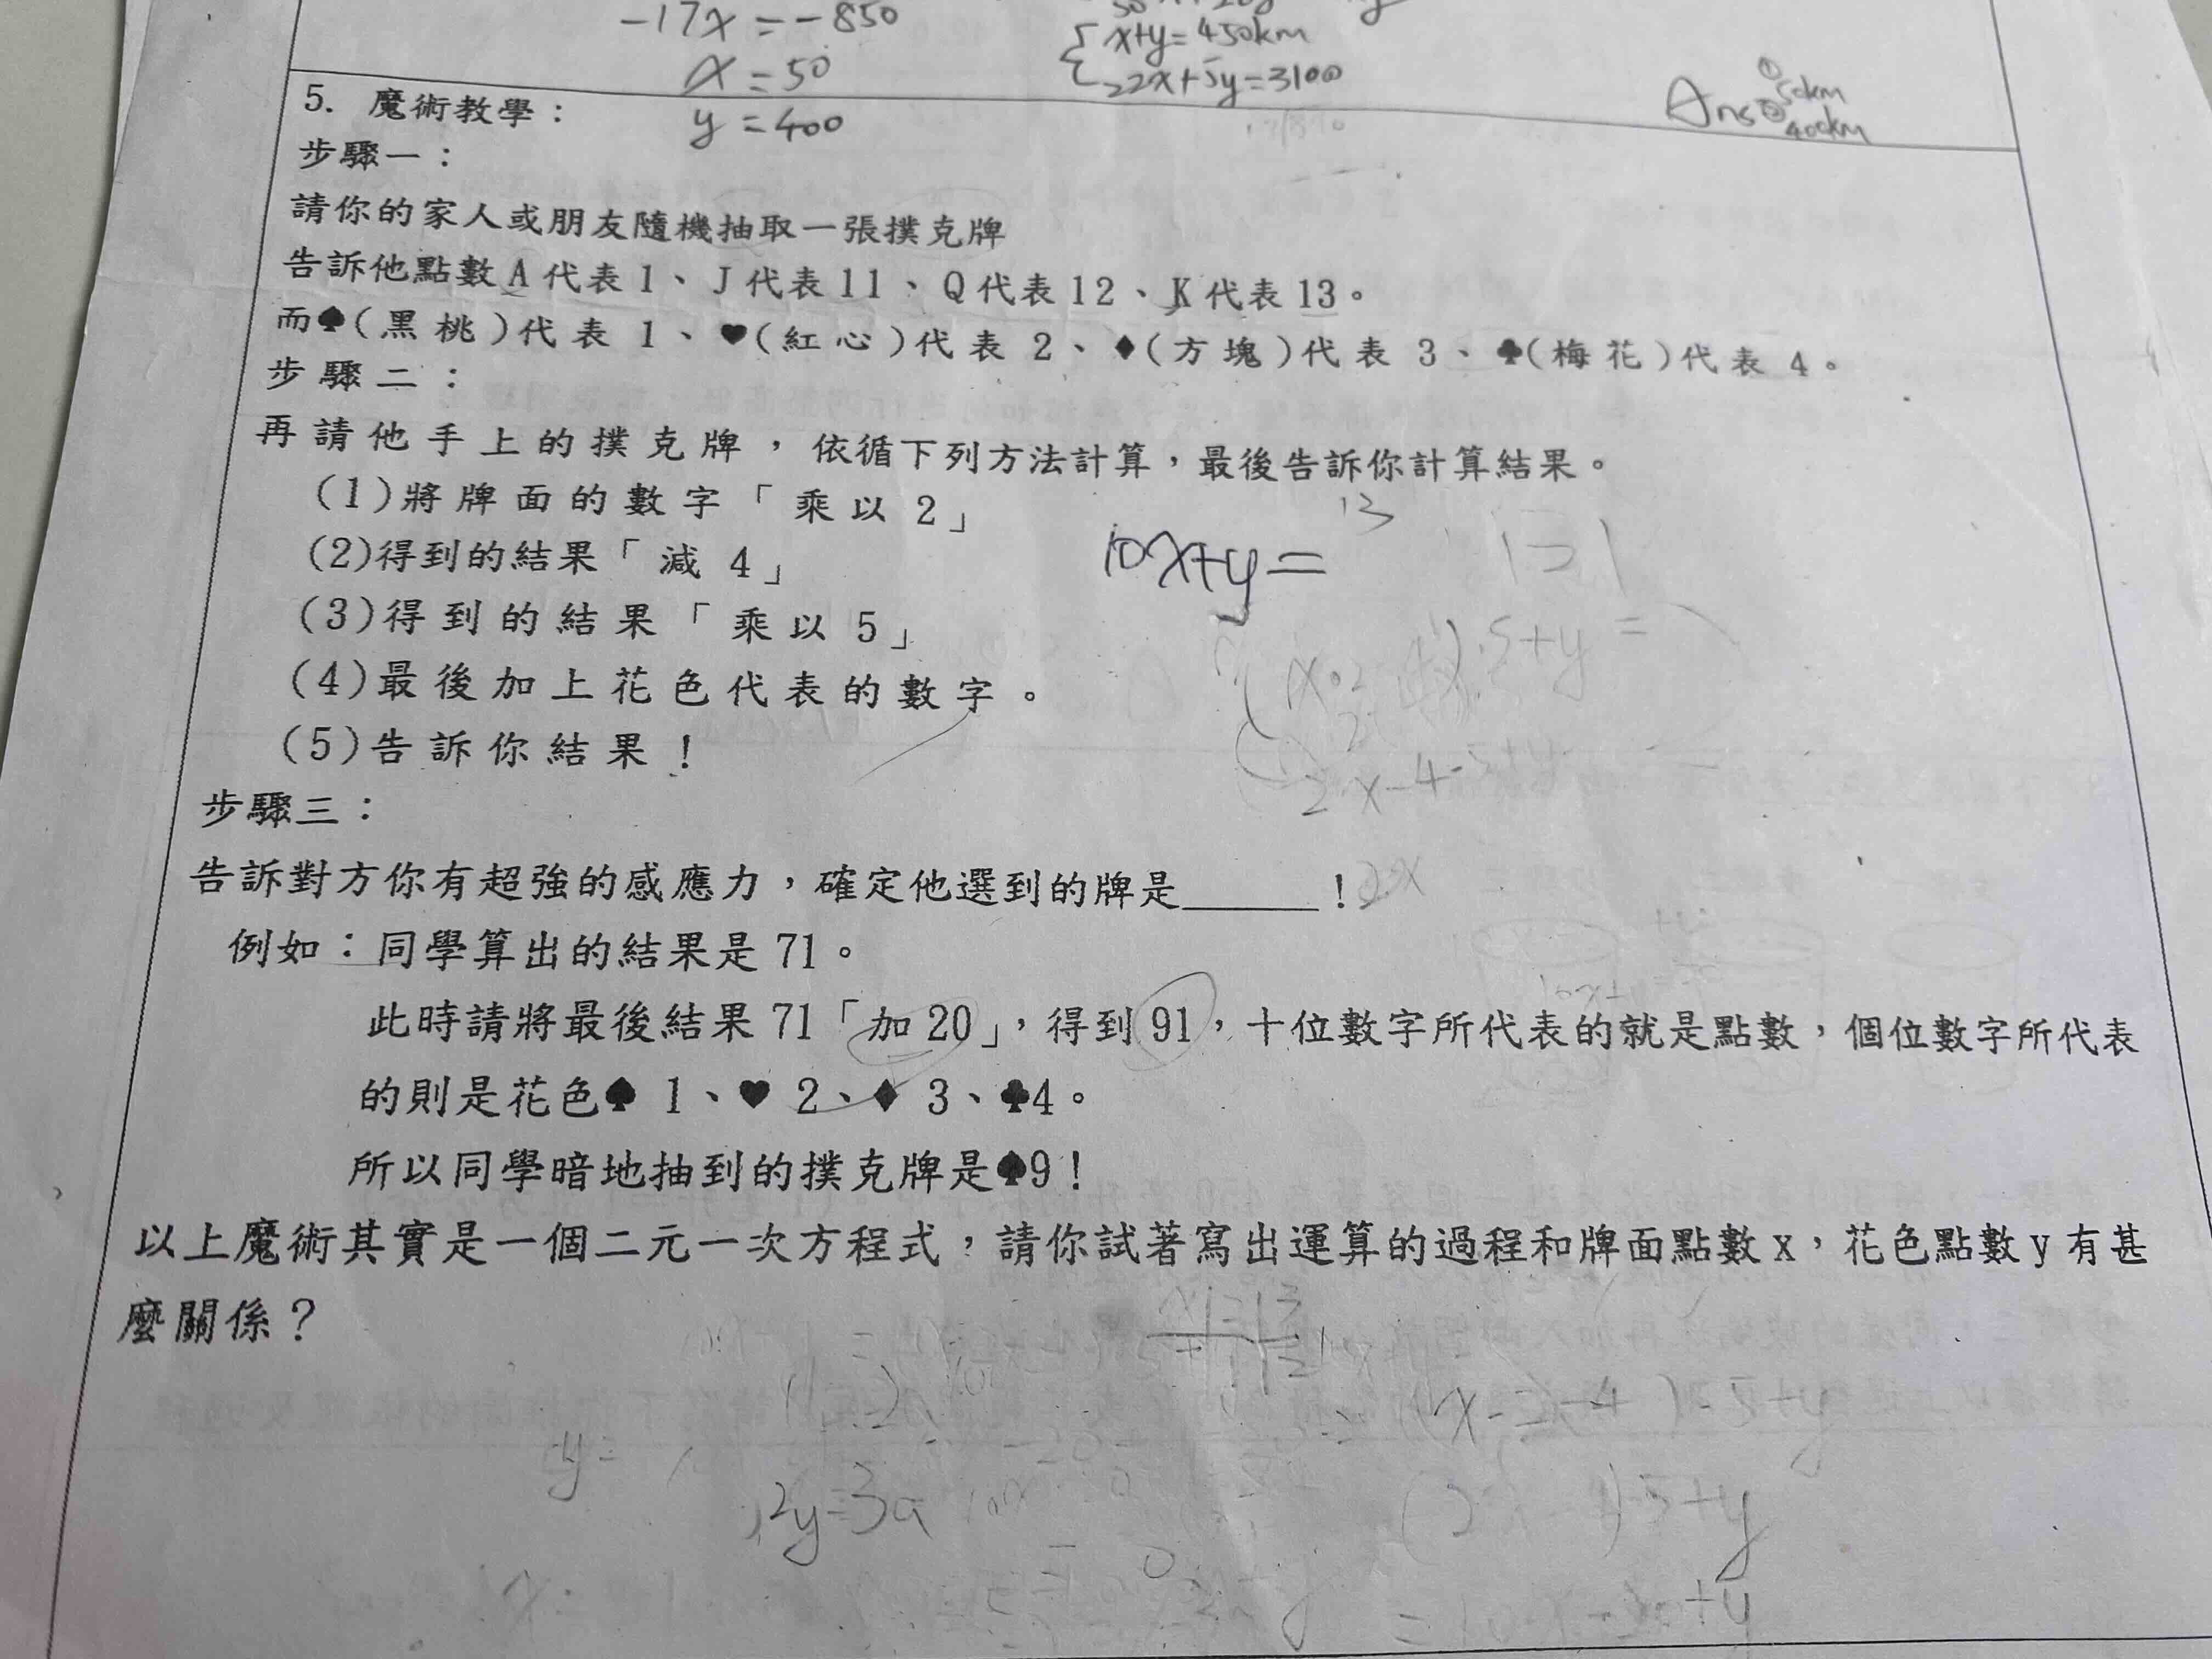 -17x=-850
x=50
y=400
{x+y=450km
22x+5y=3100
Ans①50km
②400km
5. 魔術教學：
步驟一：
請你的家人或朋友隨機抽取一張撲克牌
告訴他點數A代表1、J代表11、Q代表12、K代表13。
而♠(黑桃)代表 1、♥(紅心)代表 2、♦(方塊)代表 3、♣(梅花)代表 4。
步驟二：
再請他手上的撲克牌，依循下列方法計算，最後告訴你計算結果。
(1)將牌面的數字「乘以 2」
13
(2)得到的結果「減 4」
10x+y=
(3)得到的結果「乘以 5」
(4)最後加上花色代表的數字。
(5)告訴你結果！
2x-4-5+y
步驟三：
告訴對方你有超強的感應力，確定他選到的牌是______！
2x
例如：同學算出的結果是 71。
此時請將最後結果 71「加 20」，得到 91，十位數字所代表的就是點數，個位數字所代表
的則是花色♠ 1、♥ 2、♦ 3、♣4。
所以同學暗地抽到的撲克牌是♠9！
以上魔術其實是一個二元一次方程式，請你試著寫出運算的過程和牌面點數 x，花色點數 y 有甚
麼關係？
y=